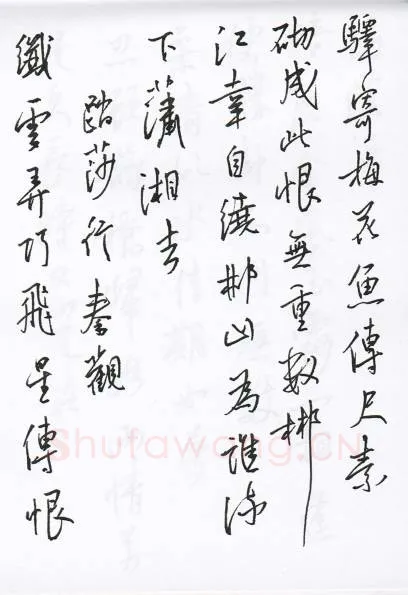 驛寄梅花魚傳尺素
砌成此恨無重數郴
江幸自繞郴山為誰流
下瀟湘去
踏莎行秦觀
纖雲弄巧飛星傳恨
Shufawang.CN